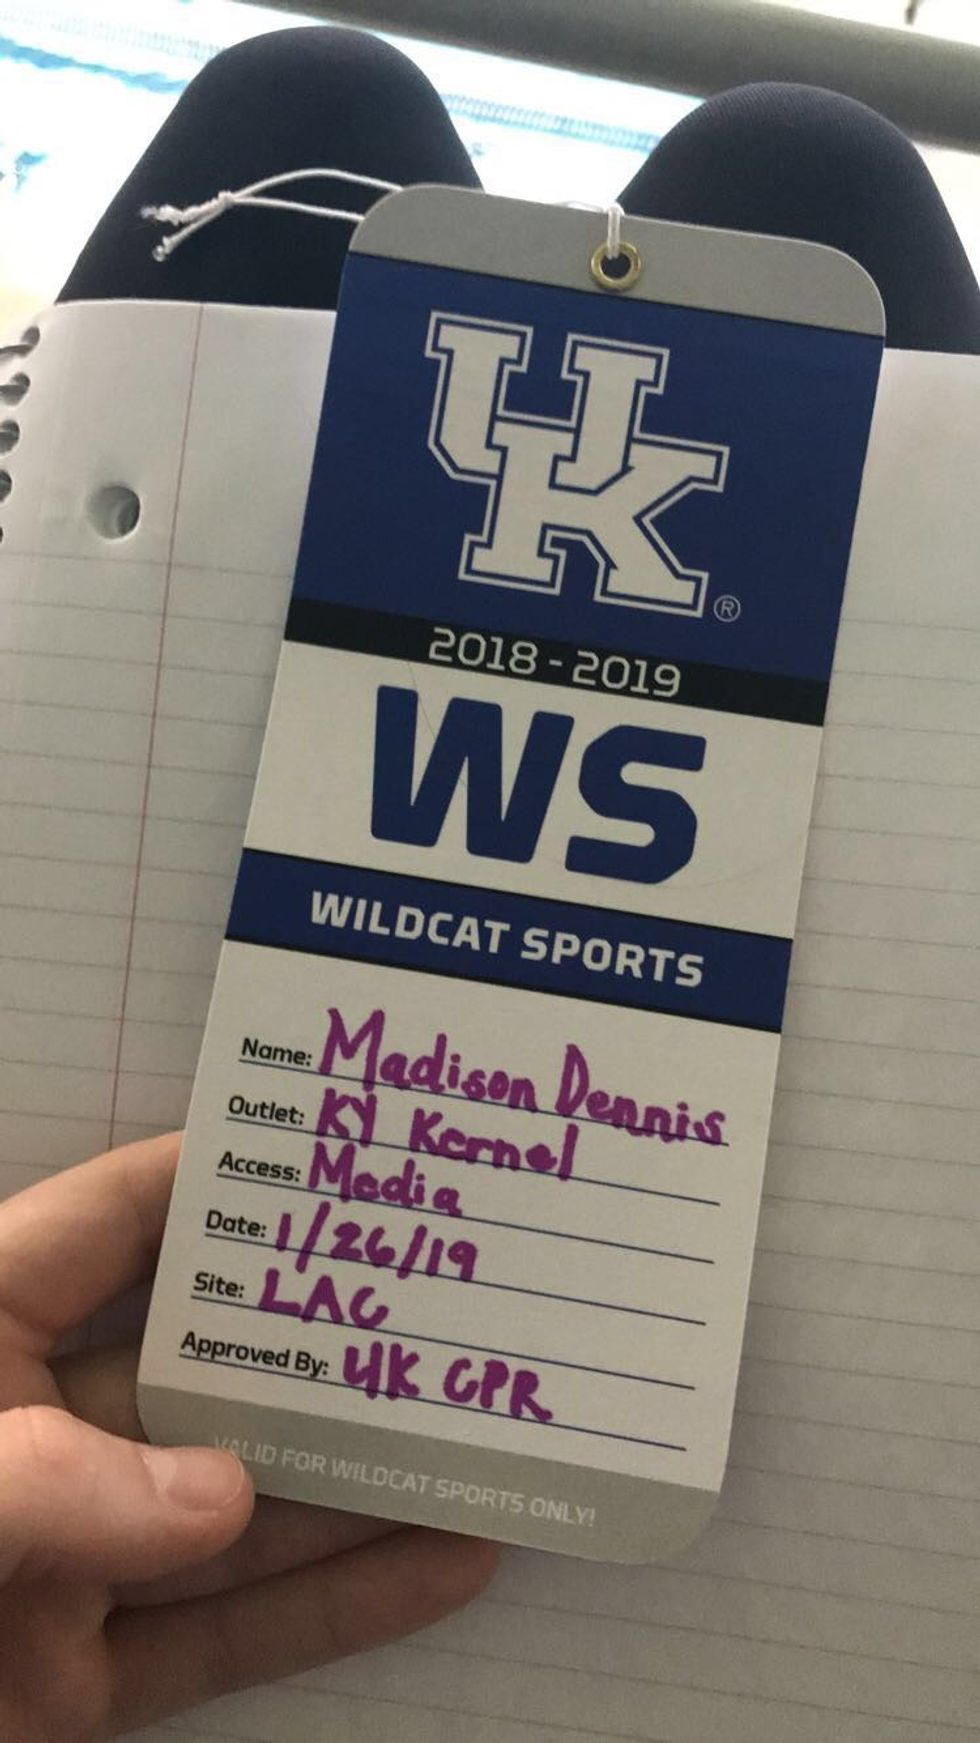 UK®
2018 - 2019
WS
WILDCAT SPORTS
Name: Madison Dennis
Outlet: KY Kernel
Access: Media
Date: 1/26/19
Site: LAC
Approved By: UK CPR
VALID FOR WILDCAT SPORTS ONLY!